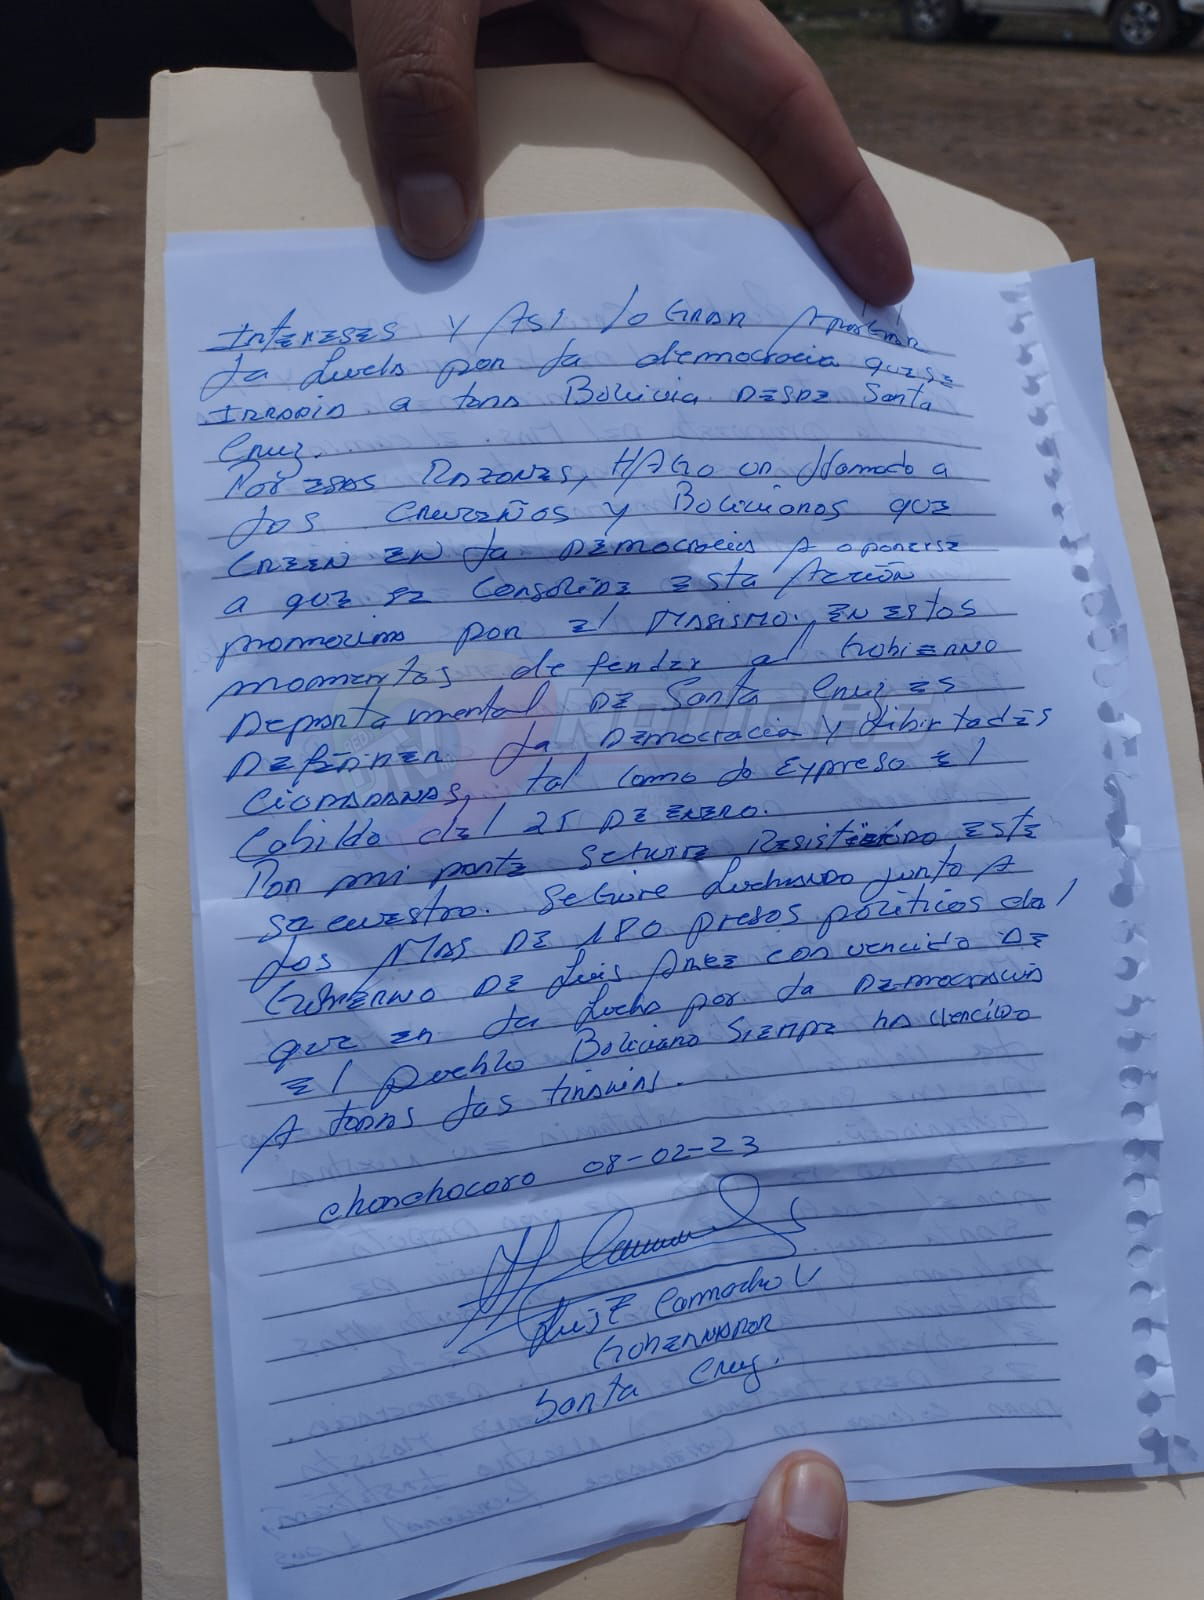 Intereses y Así lograr Apagar
la lucha por la democracia que se
Irradia a toda Bolivia desde Santa
Cruz.
Por esas Razones, HAGO un llamado a
los Cruceños y Bolivianos que
creen en la Democracia A oponerse
a que se consolide esta Acción
promovida por el Masismo. En estos
momentos defender al Gobierno
Departamental de Santa Cruz es
Defender la Democracia y libertades
Ciudadanas, tal como lo expreso el
Cabildo del 25 de Enero.
Por mi parte seguire Resistiendo este
secuestro. Seguire luchando junto A
los Mas de 180 presos políticos del
Gobierno de Luis Arce convencido de
que en la lucha por la Democracia
el pueblo Boliviano siempre ha vencido
A todas las tiranias.
Chonchocoro 08-02-23
Luis F Camacho V
Gobernador
Santa Cruz.
NOTICIAS